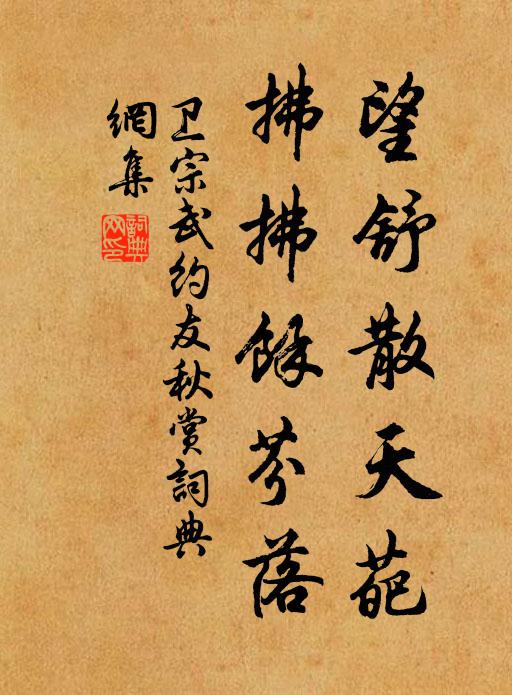 望舒散天葩
拂拂餘芬落
卫宗武约友秋赏詞典
網集
詞典網印